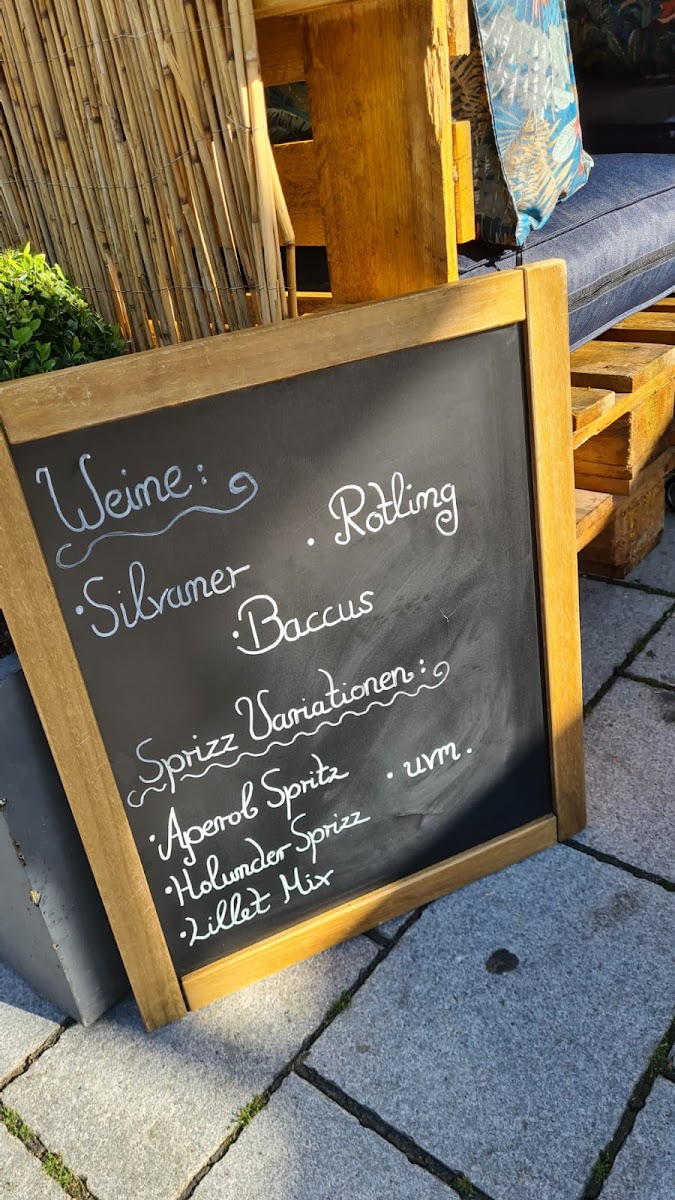 Weine:
· Silvaner
· Rotling
· Baccus
Sprizz Variationen:
· Aperol Spritz
· uvm.
· Holunder Sprizz
· Lillet Mix